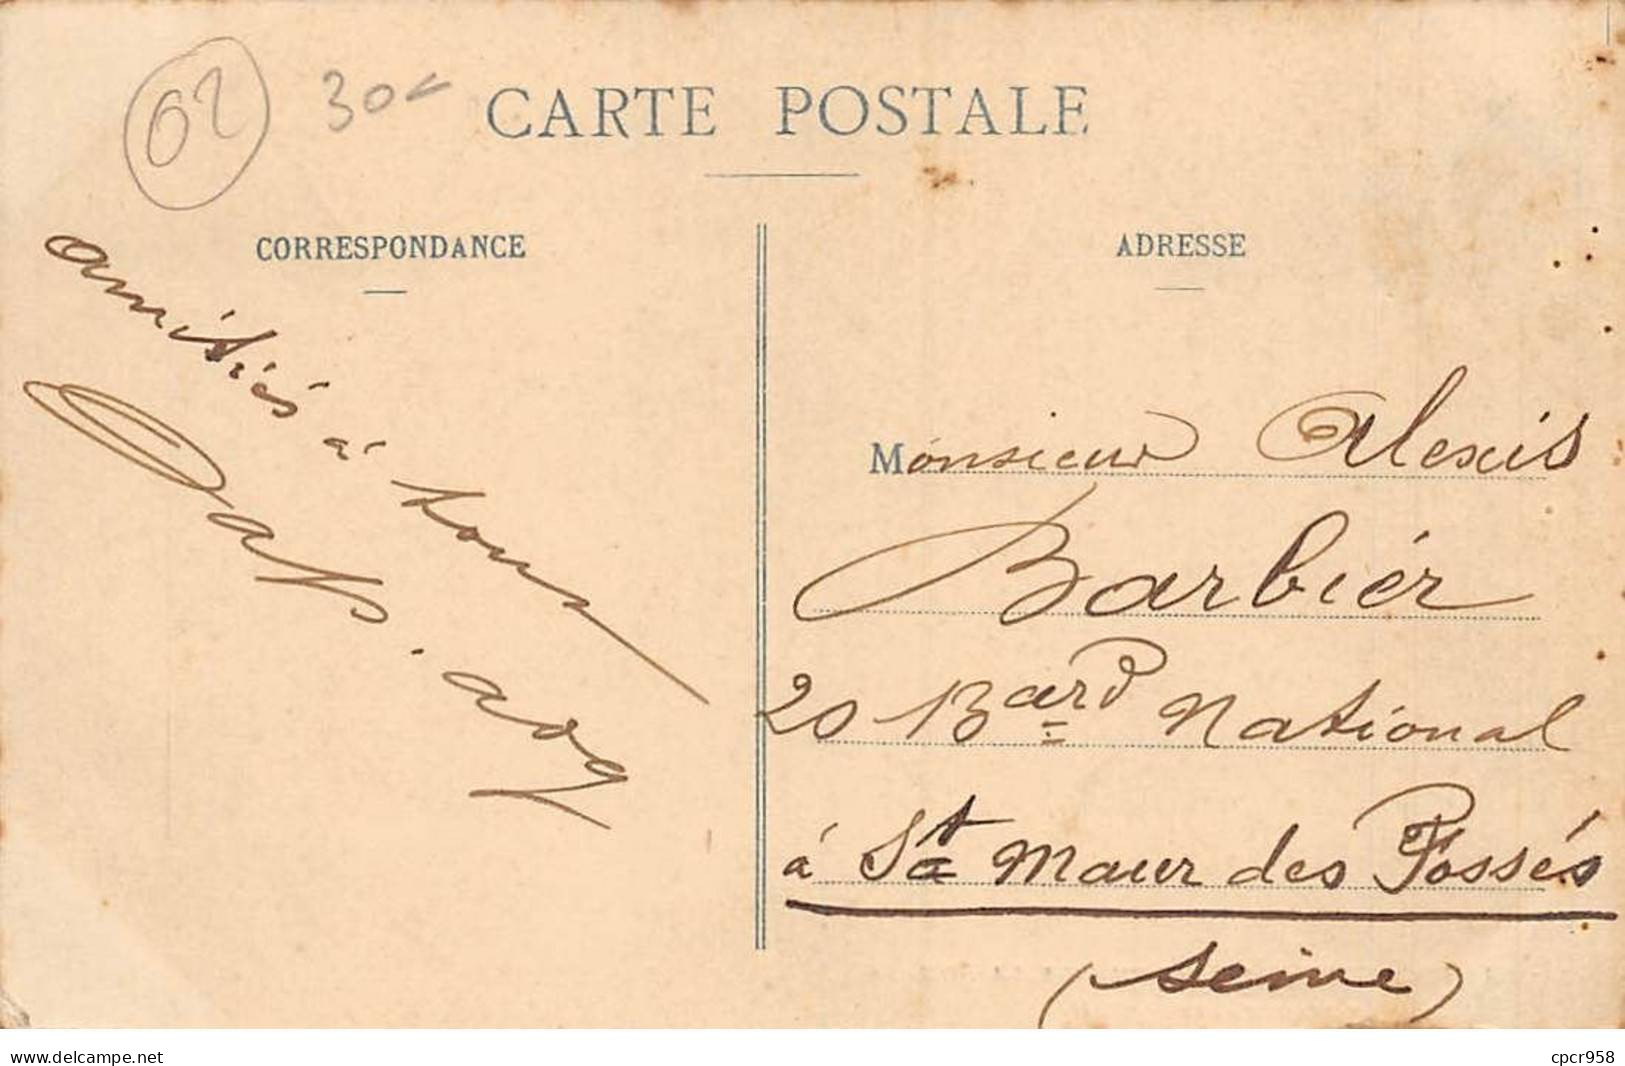 02
30
CARTE POSTALE
CORRESPONDANCE
amitiés à tous
ADRESSE
Monsieur Alexis
Barbier
20 Bard National
à St Maur des Fossés
(Seine)
www.delcampe.net
cpcr958